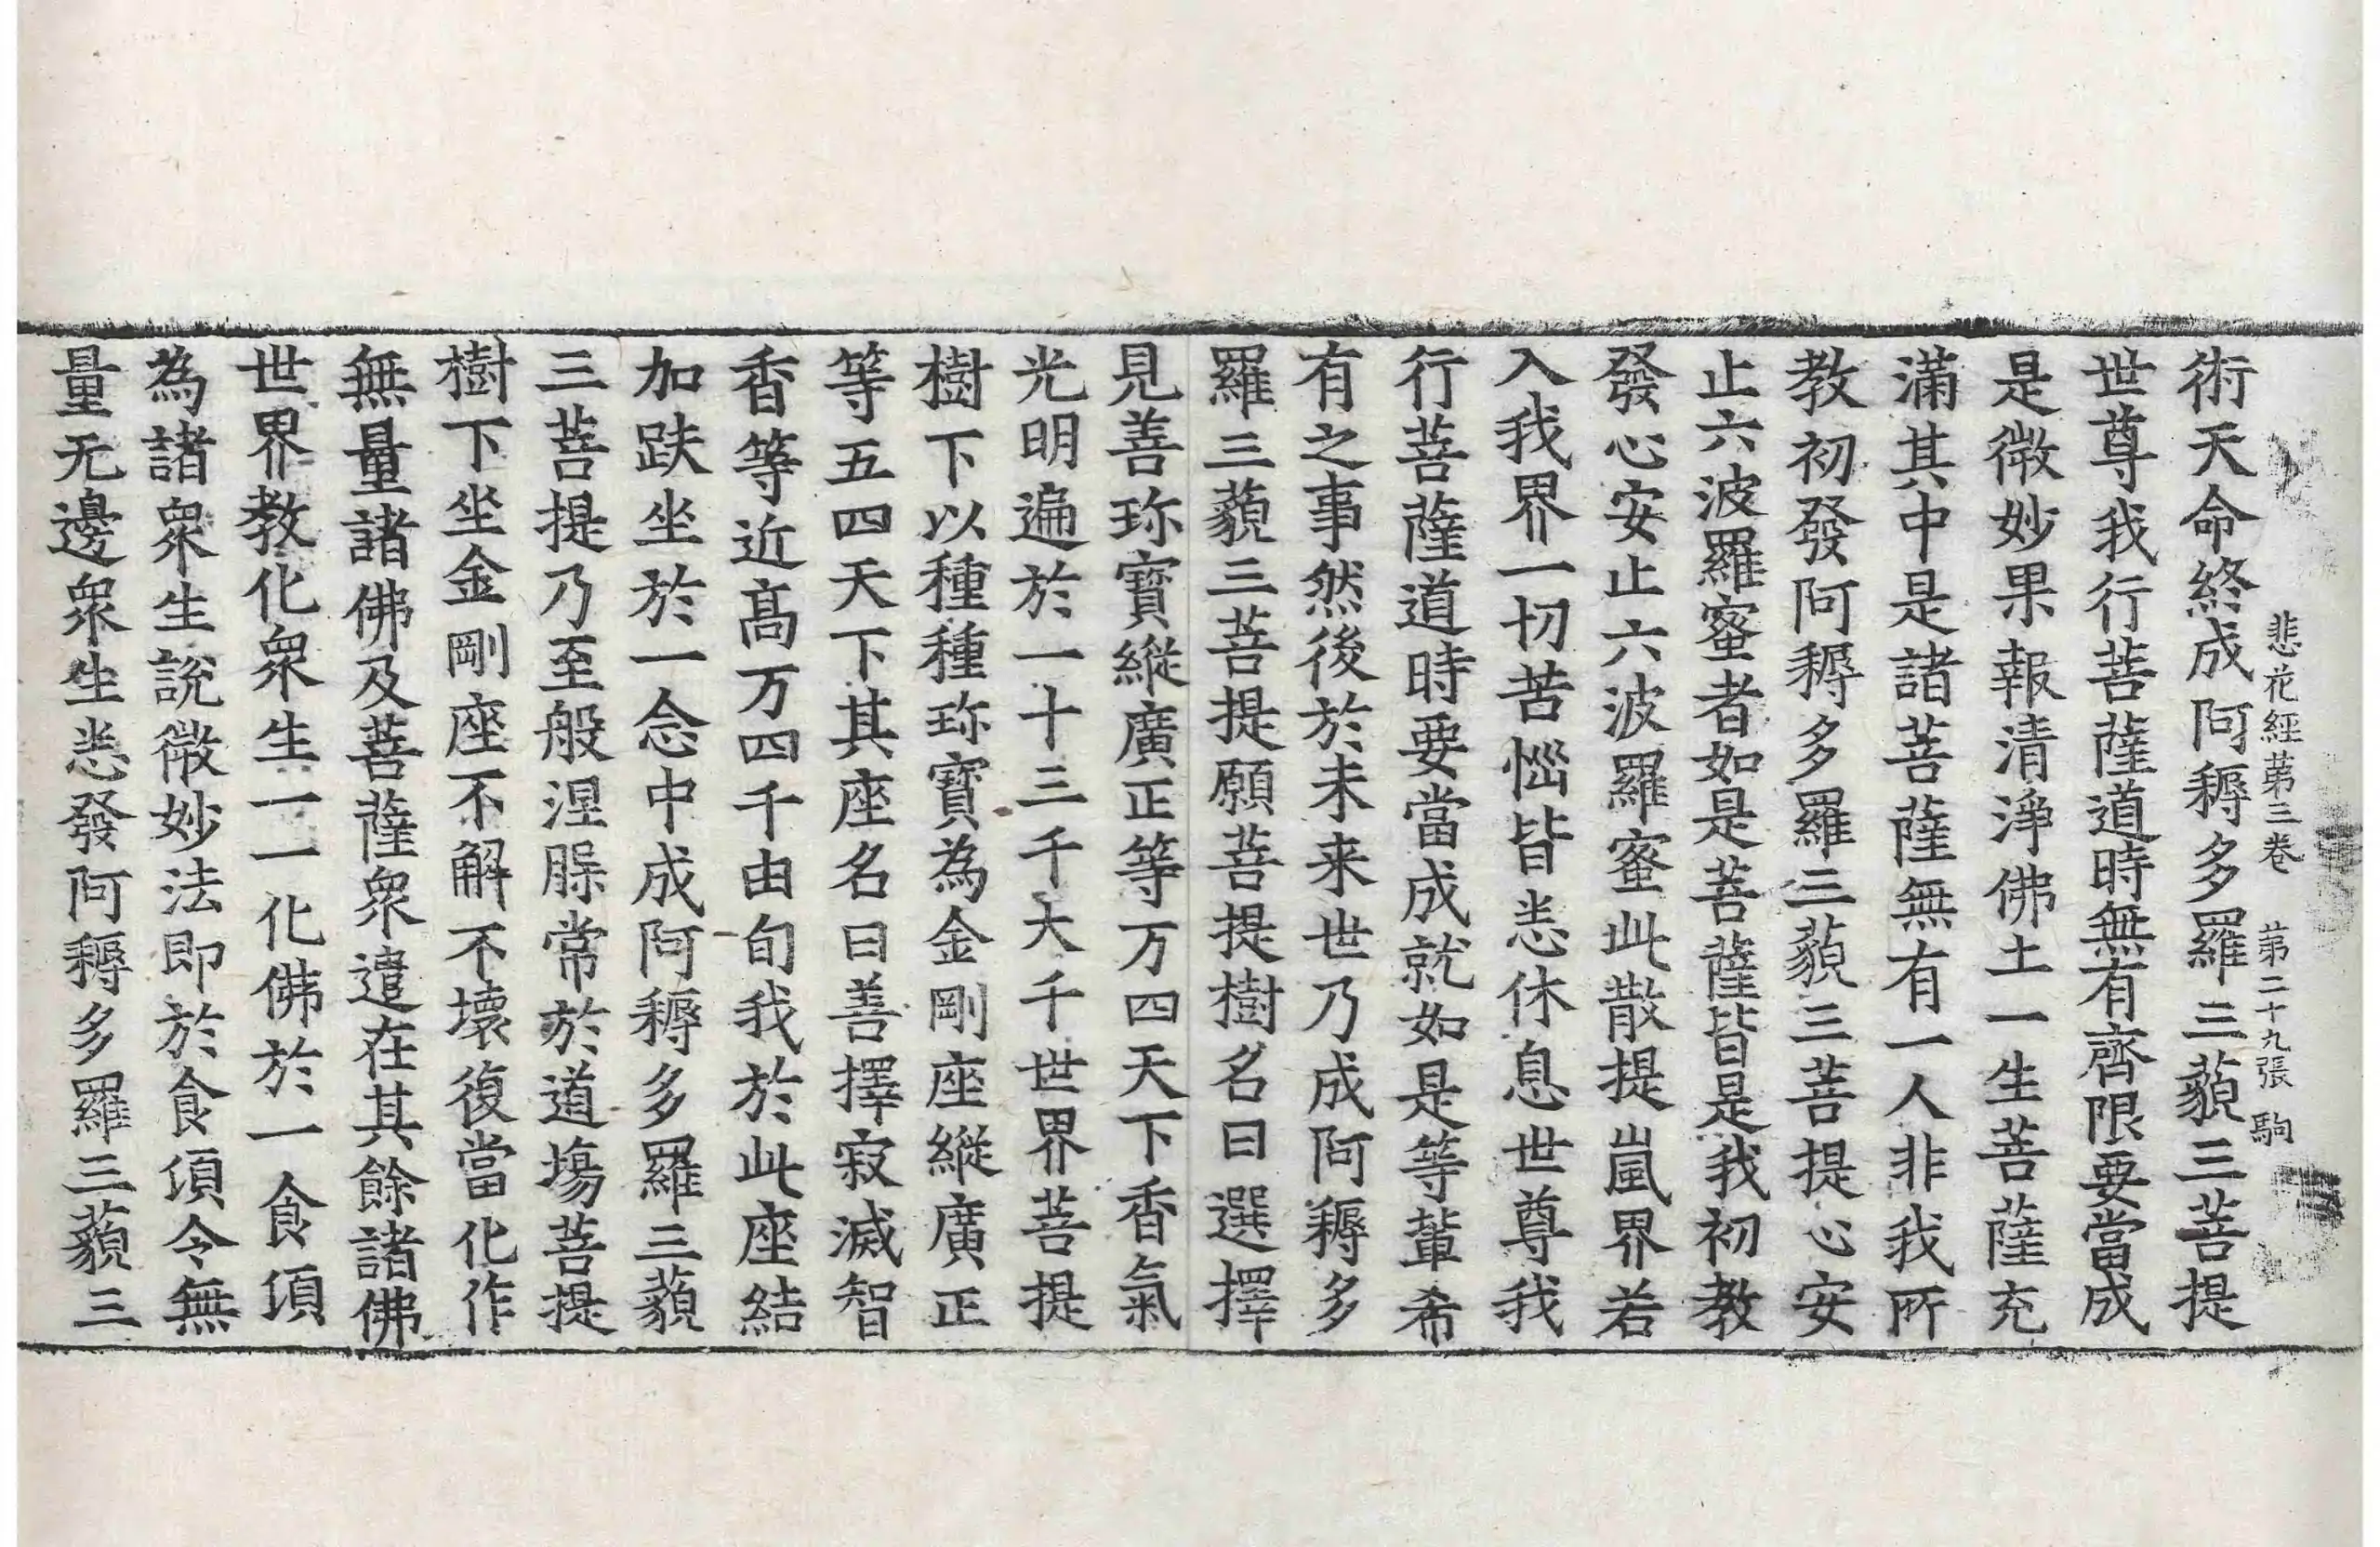 悲花經苐三卷 苐二十九張 駒
術天命終成阿耨多羅三藐三菩提
世尊我行菩薩道時無有齊限要當成
是微妙果報清淨佛土一生菩薩充
滿其中是諸菩薩無有一人非我所
教初發阿耨多羅三藐三菩提心安
止六波羅蜜者如是菩薩皆是我初教
發心安止六波羅蜜此散提嵐界若
入我界一切苦惱皆悉休息世尊我
行菩薩道時要當成就如是等軰希
有之事然後於未来世乃成阿耨多
羅三藐三菩提願菩提樹名曰選擇
見善珎寶縱廣正等万四天下香氣
光明遍於一十三千大千世界菩提
樹下以種種珎寶為金剛座縱廣正
等五四天下其座名曰善擇寂滅智
香等近髙万四千由旬我於此座結
加趺坐於一念中成阿耨多羅三藐
三菩提乃至般涅槃常於道場菩提
樹下坐金剛座不解不壞復當化作
無量諸佛及菩薩衆遣在其餘諸佛
世界教化衆生一一化佛於一食頃
為諸衆生說微妙法即於食頃令無
量无邊衆生悉發阿耨多羅三藐三